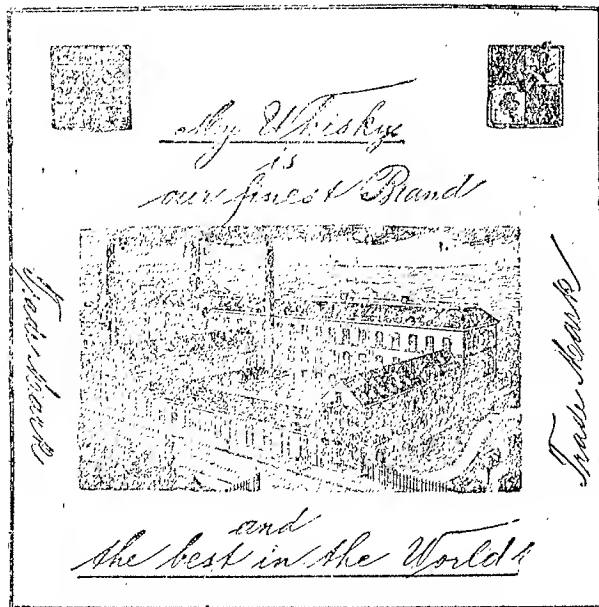 My Whisky
is
our finest Brand
Trade Mark
Trade Mark
and
the best in the World